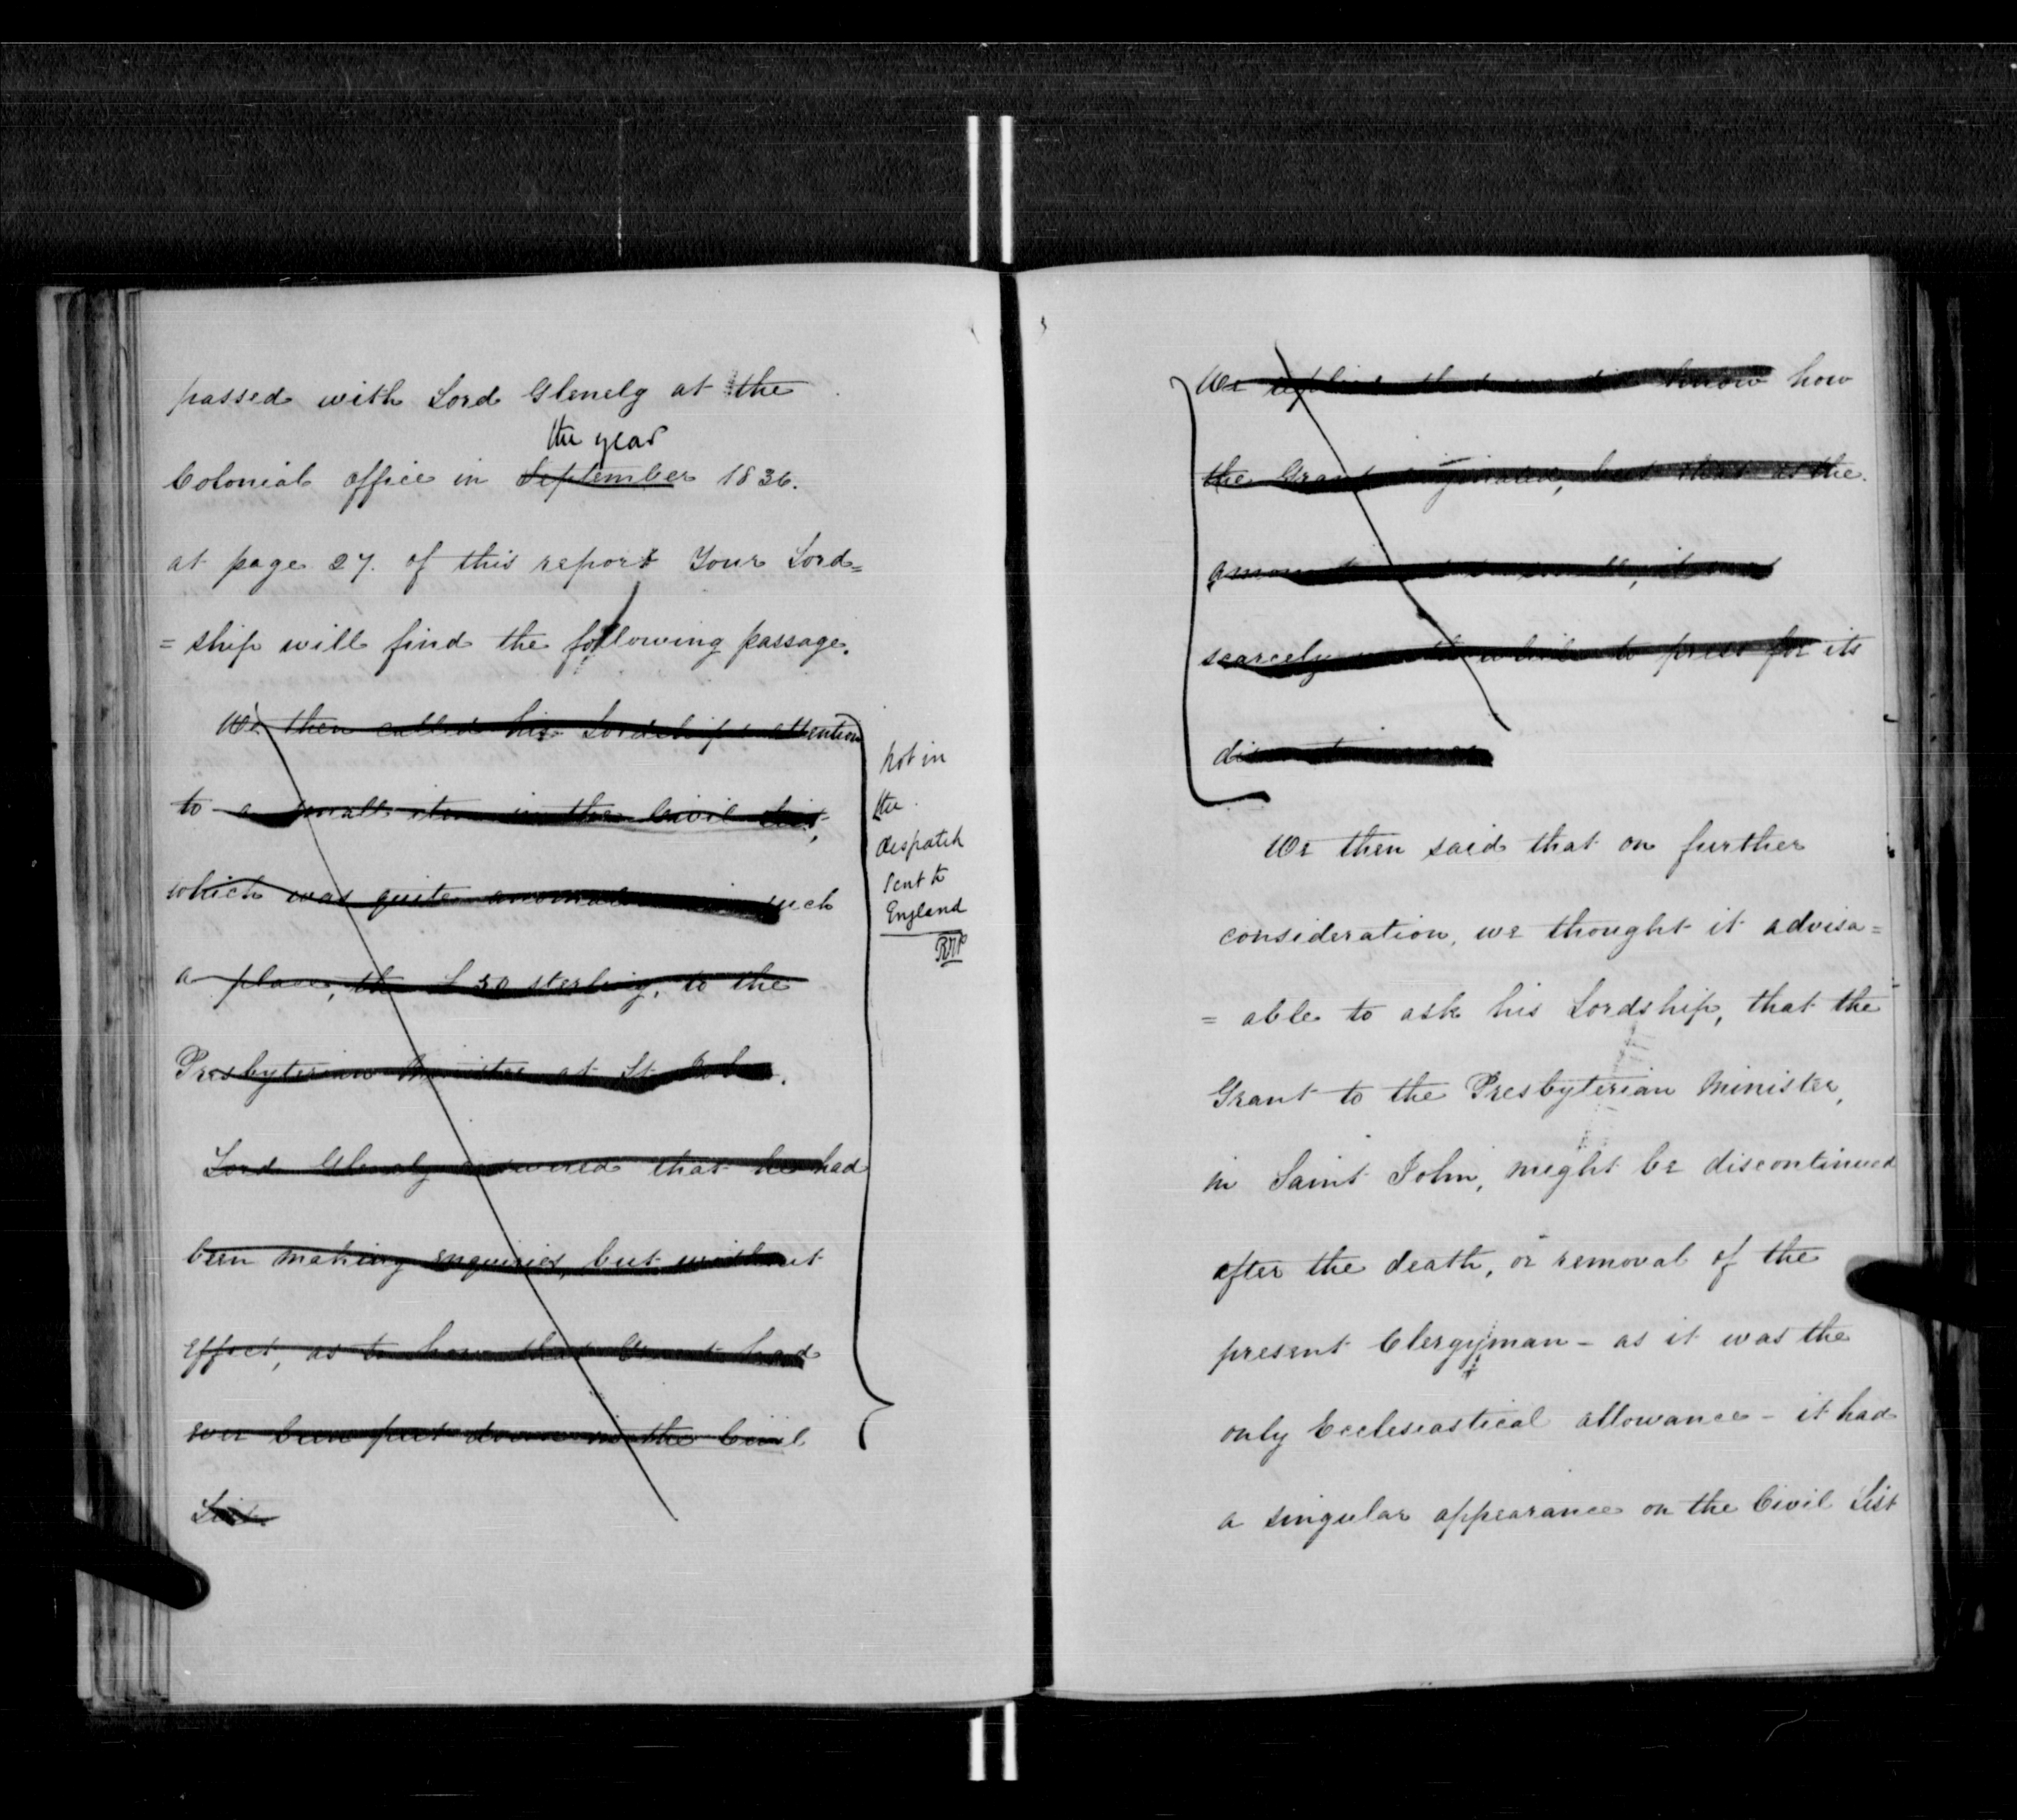 passed with Lord Glenelg at the
the year
Colonial office in September 1836.
at page 27. of this report Your Lord=
=ship will find the following passage.
We then called his Lordship's attention
to a small item in the Civil List,
which was quite anomalous in such
a place, the £50 sterling, to the
Presbyterian Minister at St. John.
Lord Glenelg answered that he had
been making enquiries, but without
effect, as to how that Grant had
ever been put down in the Civil
List.
not in
the
despatch
sent to
England
We replied that we did know how
the Grant originated, but that as the
amount was so small, it was
scarcely worth while to press for its
discontinuance
We then said that on further
consideration, we thought it advisa=
=able to ask his Lordship, that the
Grant to the Presbyterian Minister,
in Saint John, might be discontinued
after the death, or removal of the
present Clergyman - as it was the
only Ecclesiastical allowance - it had
a singular appearance on the Civil List